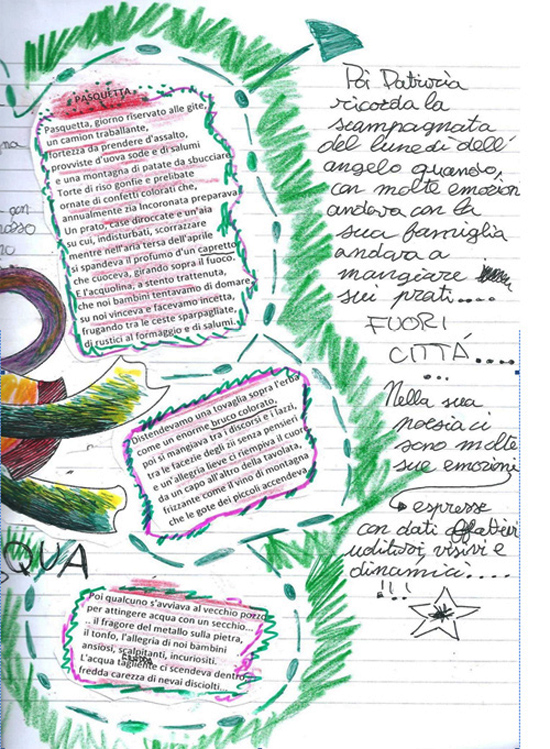 PASQUETTA
Pasquetta, giorno riservato alle gite,
un camion traballante,
fortezza da prendere d'assalto,
provviste d'uova sode e di salumi
e una montagna di patate da sbucciare.
Torte di riso gonfie e prelibate
ornate di confetti colorati che,
annualmente zia Incoronata preparava.
Un prato, case diroccate e un'aia
su cui, indisturbati, scorrazzare
mentre nell'aria tersa dell'aprile
si spandeva il profumo d'un capretto
che cuoceva, girando sopra il fuoco.
E l'acquolina, a stento trattenuta,
che noi bambini tentavamo di domare,
su noi vinceva e facevamo incetta,
frugando tra le ceste sparpagliate,
di rustici al formaggio e di salumi.
Distendevamo una tovaglia sopra l'erba
come un enorme bruco colorato,
poi si mangiava tra i discorsi e i lazzi,
tra le facezie degli zii senza pensieri
e un'allegria lieve ci riempiva il cuore
da un capo all'altro della tavolata,
frizzante come il vino di montagna
che le gote dei piccoli accendeva
QUA
Poi qualcuno s'avviava al vecchio pozzo
per attingere acqua con un secchio
.. il fragore del metallo sulla pietra,
il tonfo, l'allegria di noi bambini
ansiosi, scalpitanti, incuriositi.
L'acqua tagliente ci scendeva dentro
fredda carezza di nevai disciolti.
Poi Patrizia
ricorda la
scampagnata
del lunedì dell'
angelo quando,
con molte emozion
andava con la
sua famiglia
andava a
mangiare
sui prati....
FUORI
CITTÁ....
...
Nella sua
poesia ci
sono molte
sue emozioni
espresse
con dati olfattivi
uditivi, visivi e
dinamici.....
!!!